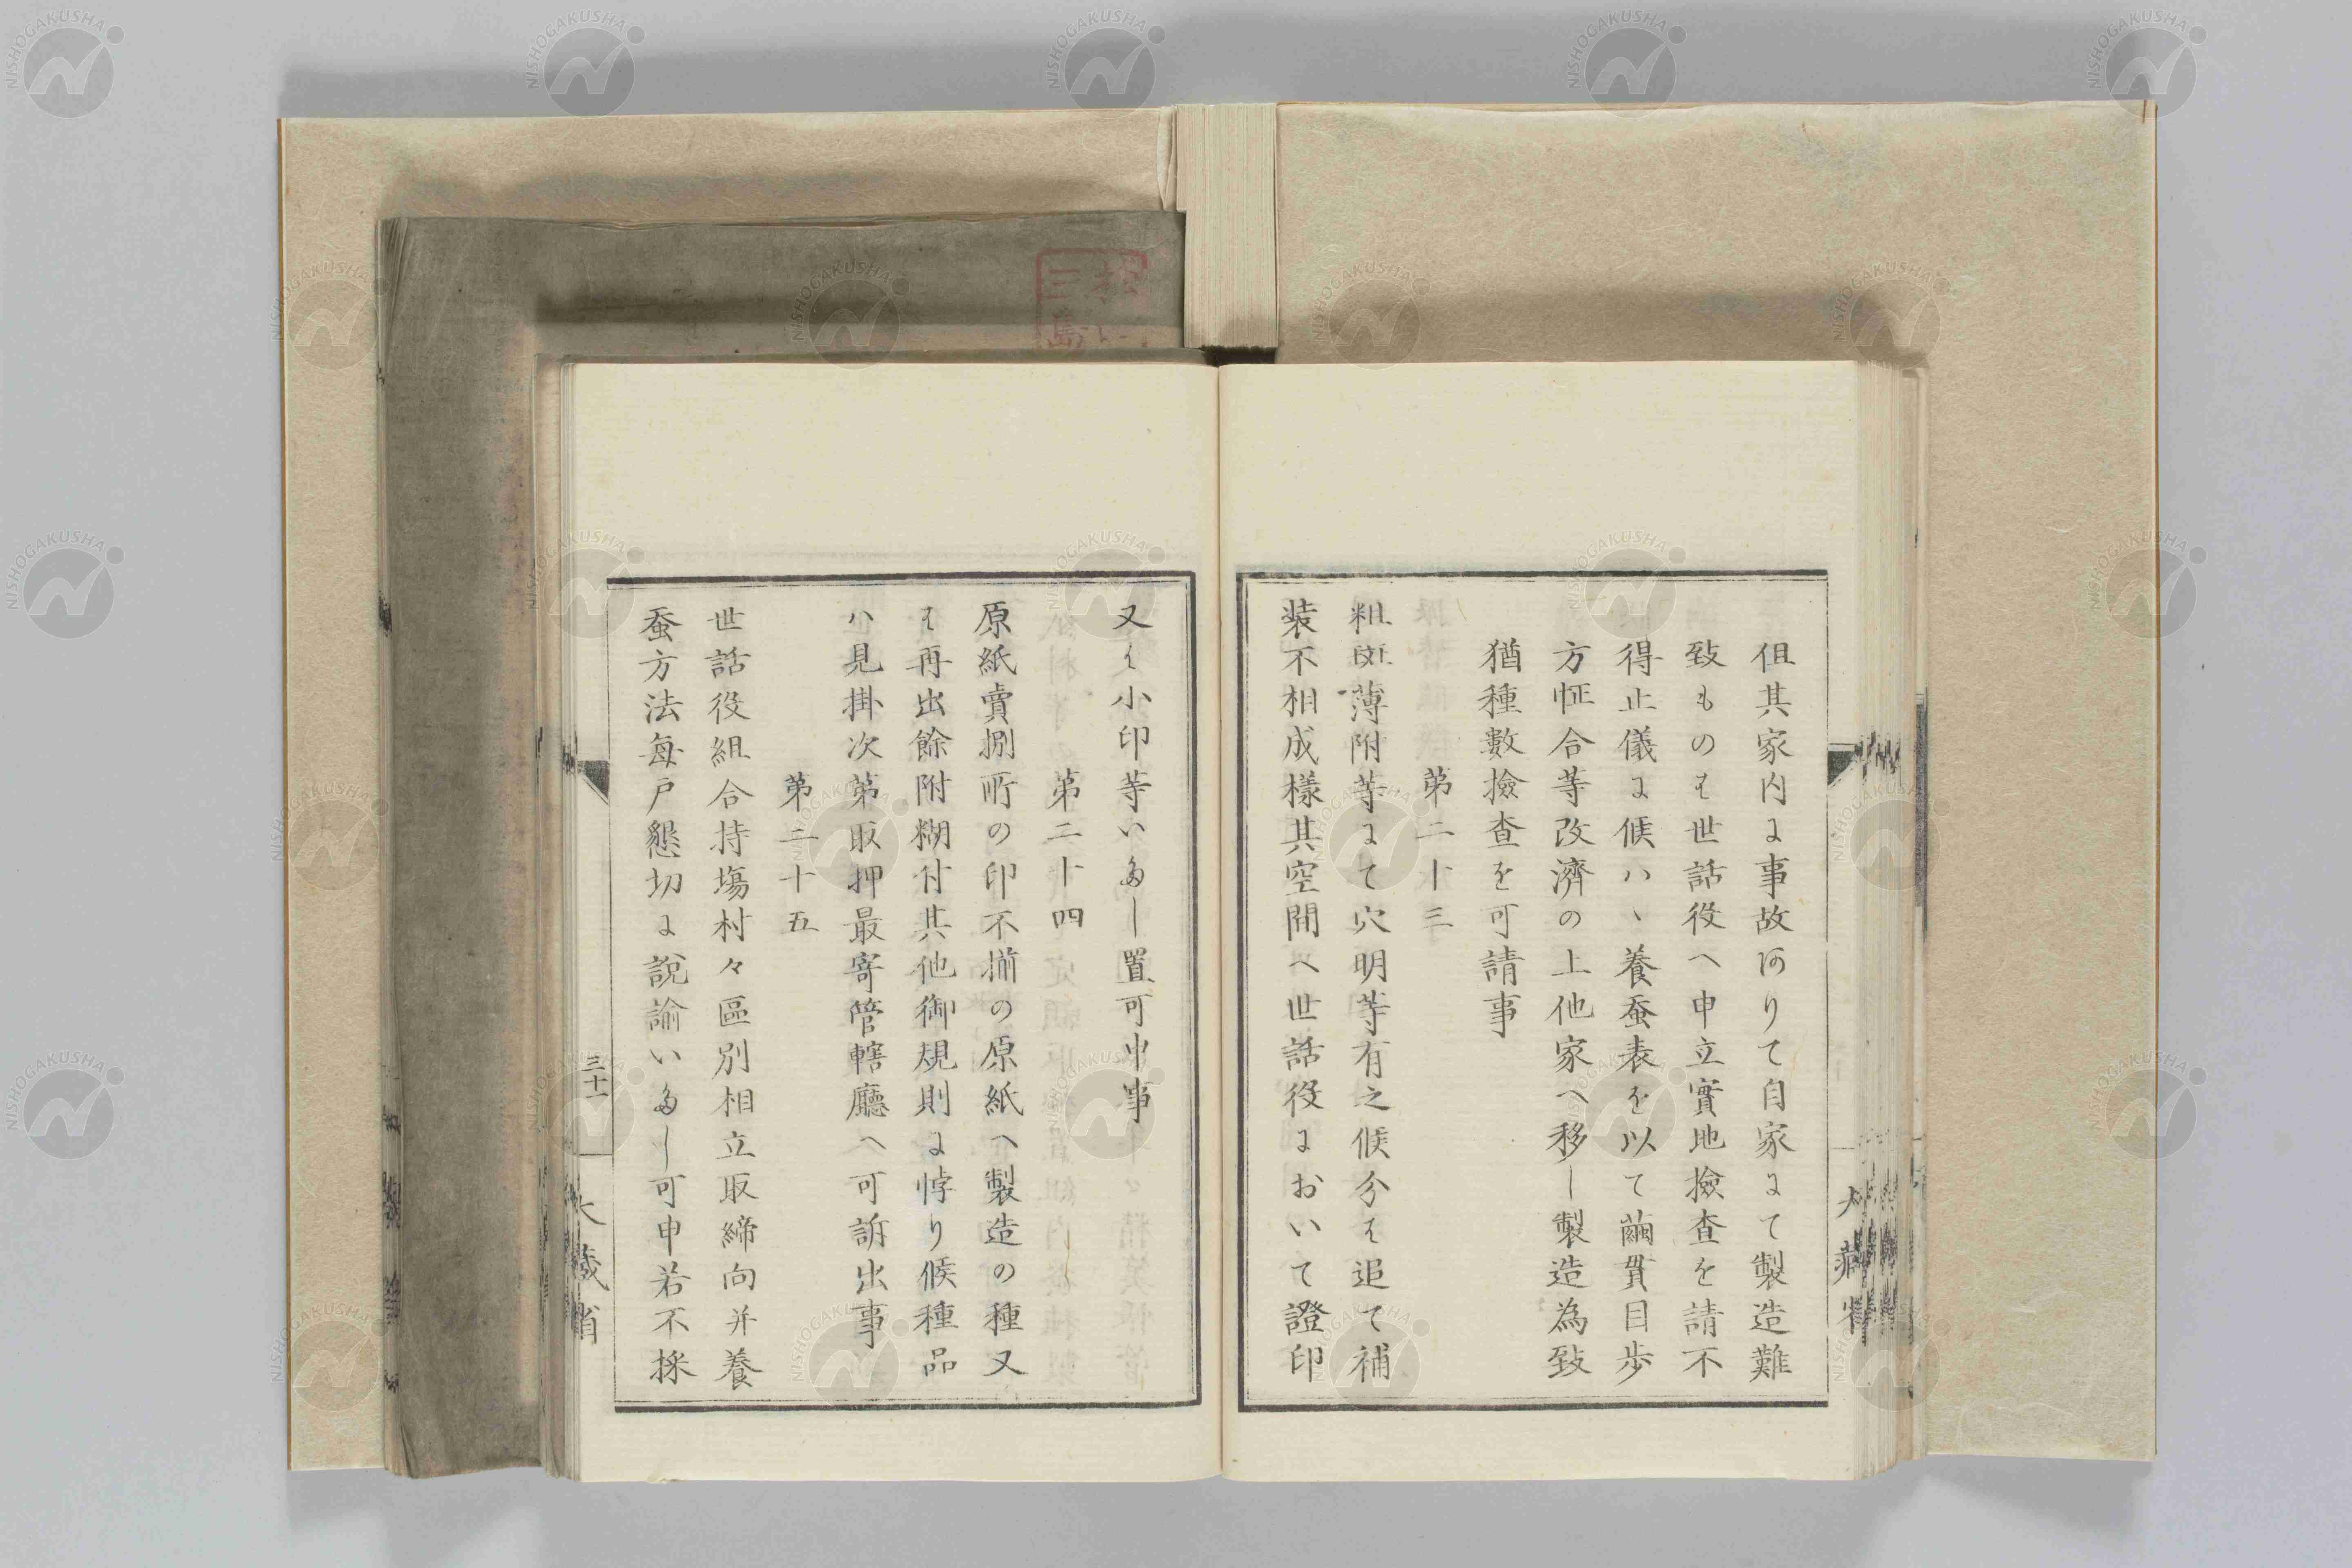 但其家内に事故ありて自家にて製造難
致ものは世話役へ申立實地撿査を請不
得止儀に候ハヽ養蚕表を以て繭貫目歩
方恇合等改濟の上他家へ移し製造為致
猶種數撿査を可請事
第二十三
粗斑薄附等にて穴明等有之候分は追て補
装不相成樣其空間へ世話役において證印
又は小印等いたし置可申事
第二十四
原紙賣捌所の印不揃の原紙へ製造の種又
は再出餘附糊付其他御規則に悖り候種品
ハ見掛次第取押最寄管轄廳へ可訴出事
第二十五
世話役組合持塲村々區別相立取締向并養
蚕方法每戸懇切に說諭いたし可申若不採
三十一
大藏省
大藏省
三島
NISHOGAKUSHA